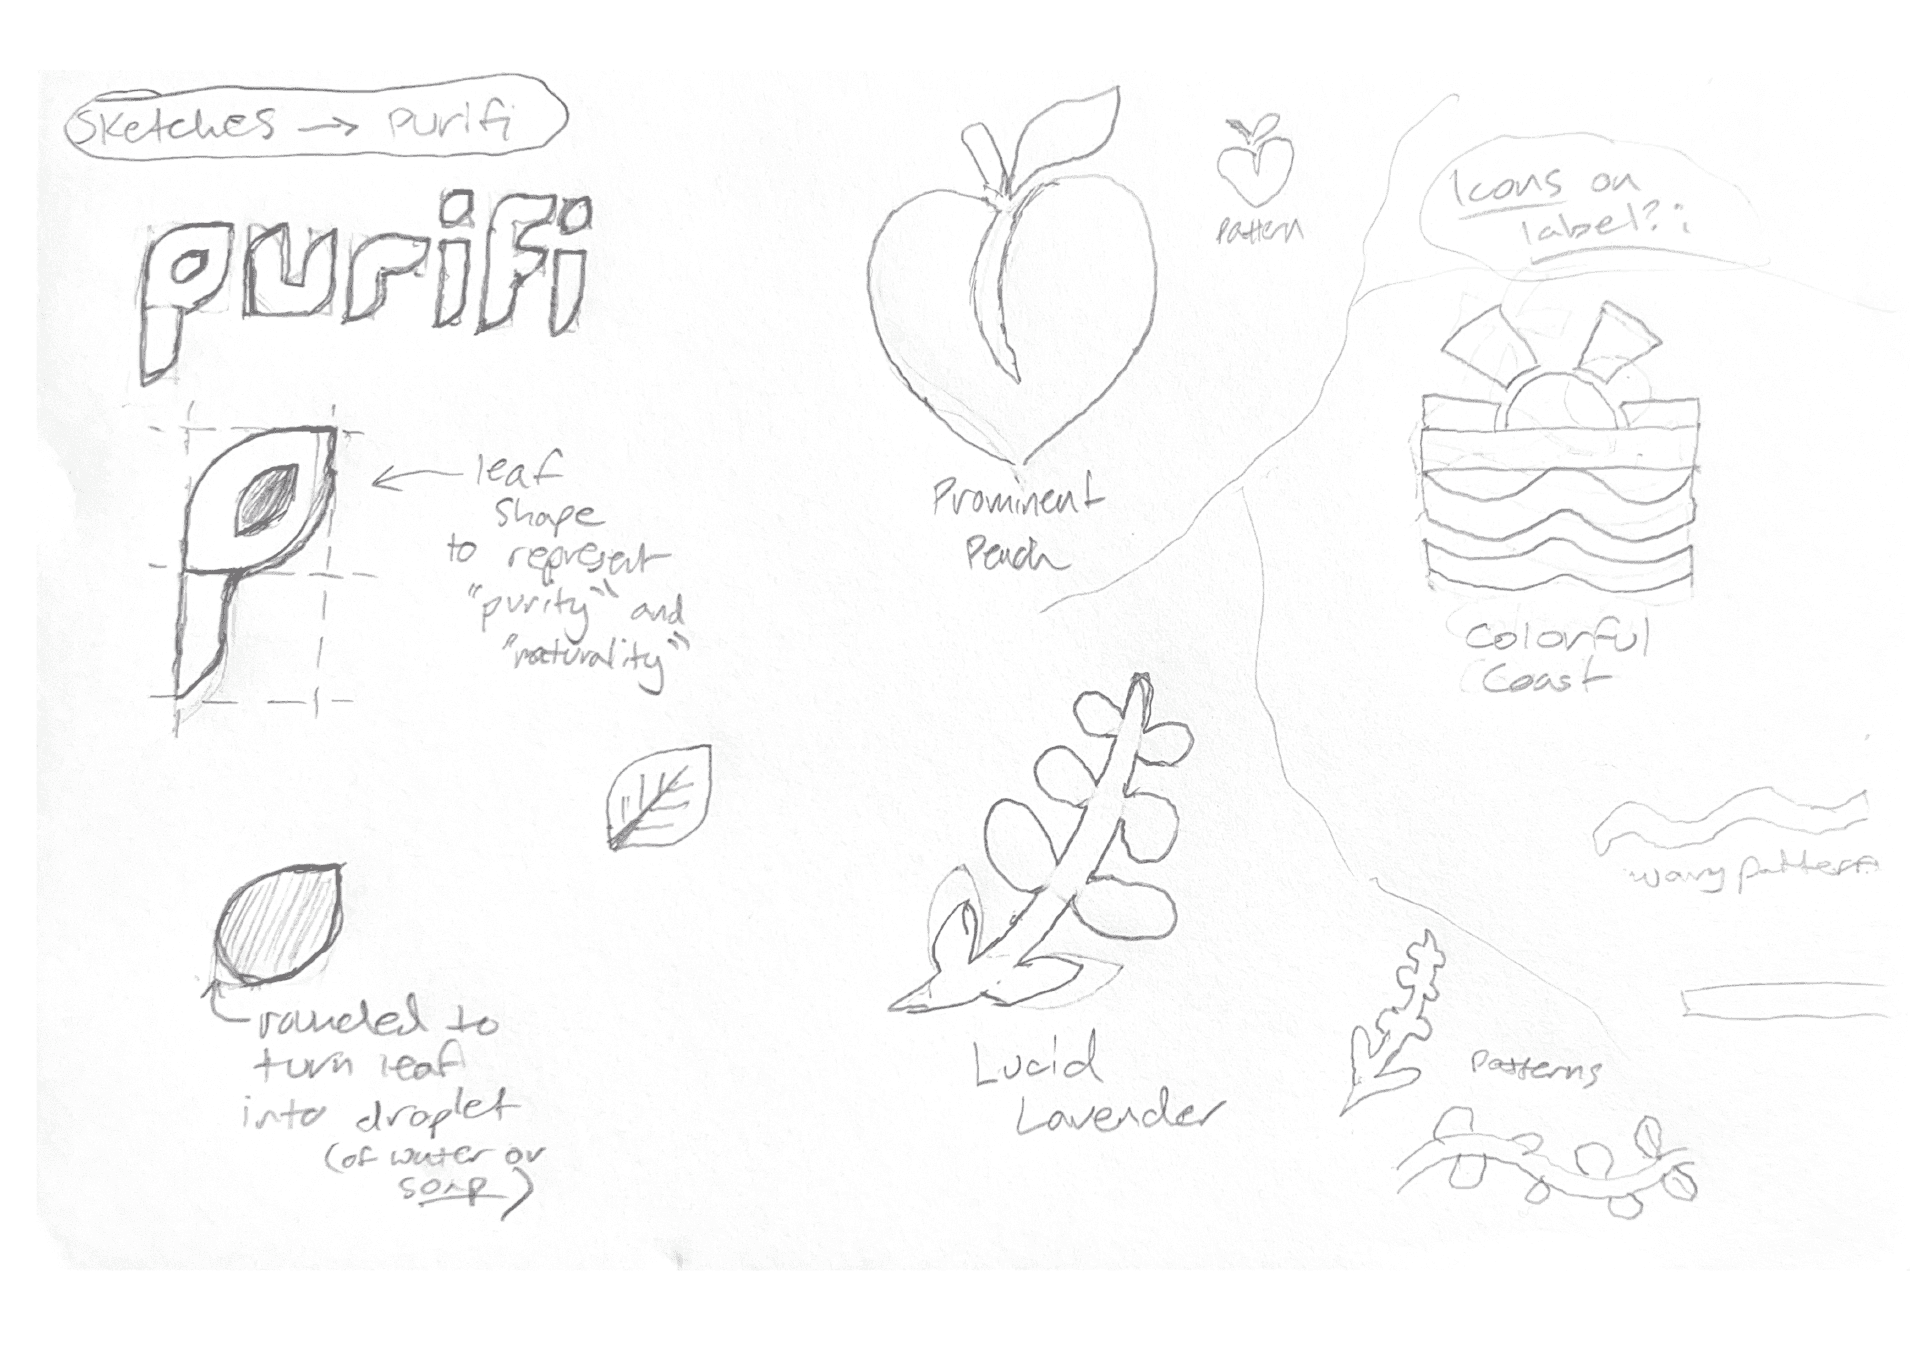 Sketches → purifi
purifi
P
leaf
shape
to represent
"purity" and
"naturality"
rounded to
turn leaf
into droplet
(of water or
soap)
Prominent
Peach
Pattern
Icons on
label?:
Colorful
Coast
wavy pattern
Lucid
Lavender
Patterns